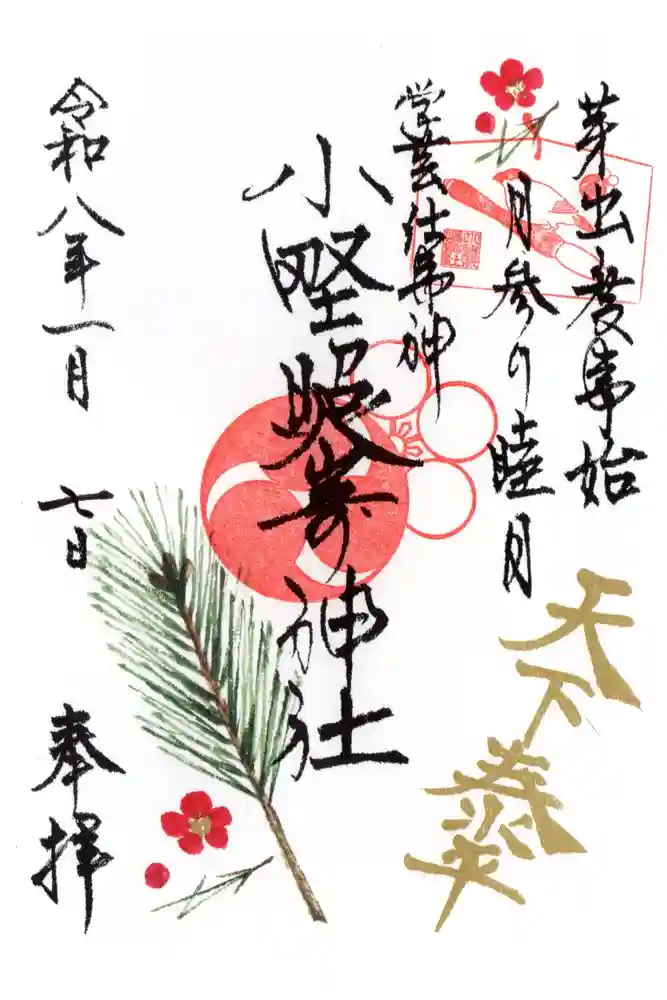 芽出度事始
月参り睦月
学芸仕事神
小野照崎神社
令和八年一月七日
奉拝
天下泰平